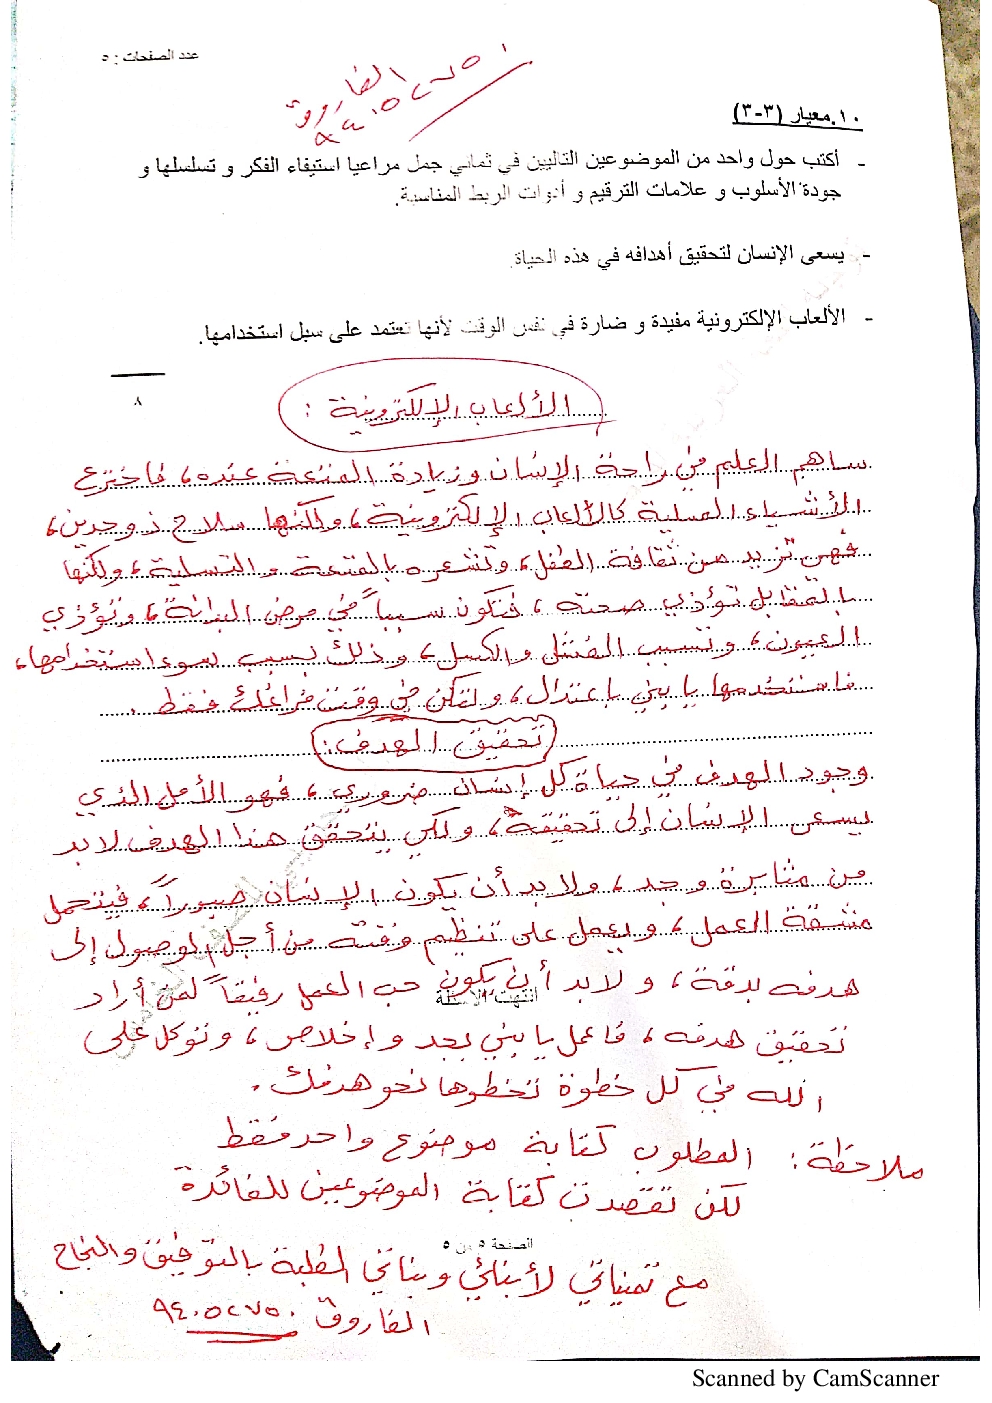 عدد الصفحات : ٥
الفاروق
٩٤٠٥٢٧٥٠
١٠. معيار (٣-٣)
- أكتب حول واحد من الموضوعين التاليين في ثماني جمل مراعيا استيفاء الفكر و تسلسلها و
جودة الأسلوب و علامات الترقيم و أدوات الربط المناسبة.
- يسعى الإنسان لتحقيق أهدافه في هذه الحياة.
- الألعاب الإلكترونية مفيدة و ضارة في نفس الوقت لأنها تعتمد على سبل استخدامها.
٨
الألعاب الإلكترونية :
ساهم العلم في راحة الإنسان وزيادة المتعة عنده، فاخترع
الأشياء المسلية كالألعاب الإلكترونية، ولكنها سلاح ذو حدين،
فهي تزيد من ثقافة الطفل، وتشعره بالمتعة والتسلية، ولكنها
بالمقابل تؤذي صحته، فتكون سبباً في مرض البدانة، وتؤذي
العيون، وتسبب الفشل والكسل، وذلك بسبب سوء استخدامها،
فاستخدمها يا بني باعتدال، ولتكن في وقت فراغك فقط .
تحقيق الهدف:
وجود الهدف في حياة كل إنسان ضروري، فهو الأمل الذي
يسعى الإنسان إلى تحقيقه، ولكي يتحقق هذا الهدف لابد
من مثابرة وجد، ولابد أن يكون الإنسان صبوراً، فيتحمل
مشقة العمل، ويعمل على تنظيم وقته من أجل الوصول إلى
هدفه بدقة، ولابد أن يكون حب العمل رفيقاً لمن أراد
انتهت الأسئلة
تحقيق هدفه، فاعمل يا بني بجد وإخلاص، وتوكل على
الله في كل خطوة تخطوها نحو هدفك .
ملاحظة : المطلوب كتابة موضوع واحد فقط
لكن تقصدت كتابة الموضوعين للفائدة
الصفحة ٥ من ٥
مع تمنياتي لأبنائي وبناتي الطلبة بالتوفيق والنجاح
الفاروق ٩٤٠٥٢٧٥٠
Scanned by CamScanner